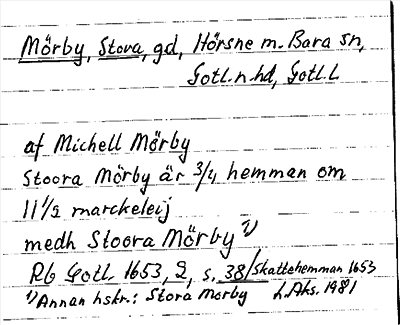 Mörby, Stora, gd, Hörsne m. Bara sn,
Gotl. n. hd, Gotl. L
af Michell Mörby
Stoora Mörby är 3/4 hemman om
11 1/2 marckeleij
medh Stoora Mörby 1)
Rb Gotl. 1653, 2, s. 38/Skattehemman 1653
1) Annan hskr.: Stora Morby L. Aks. 1981